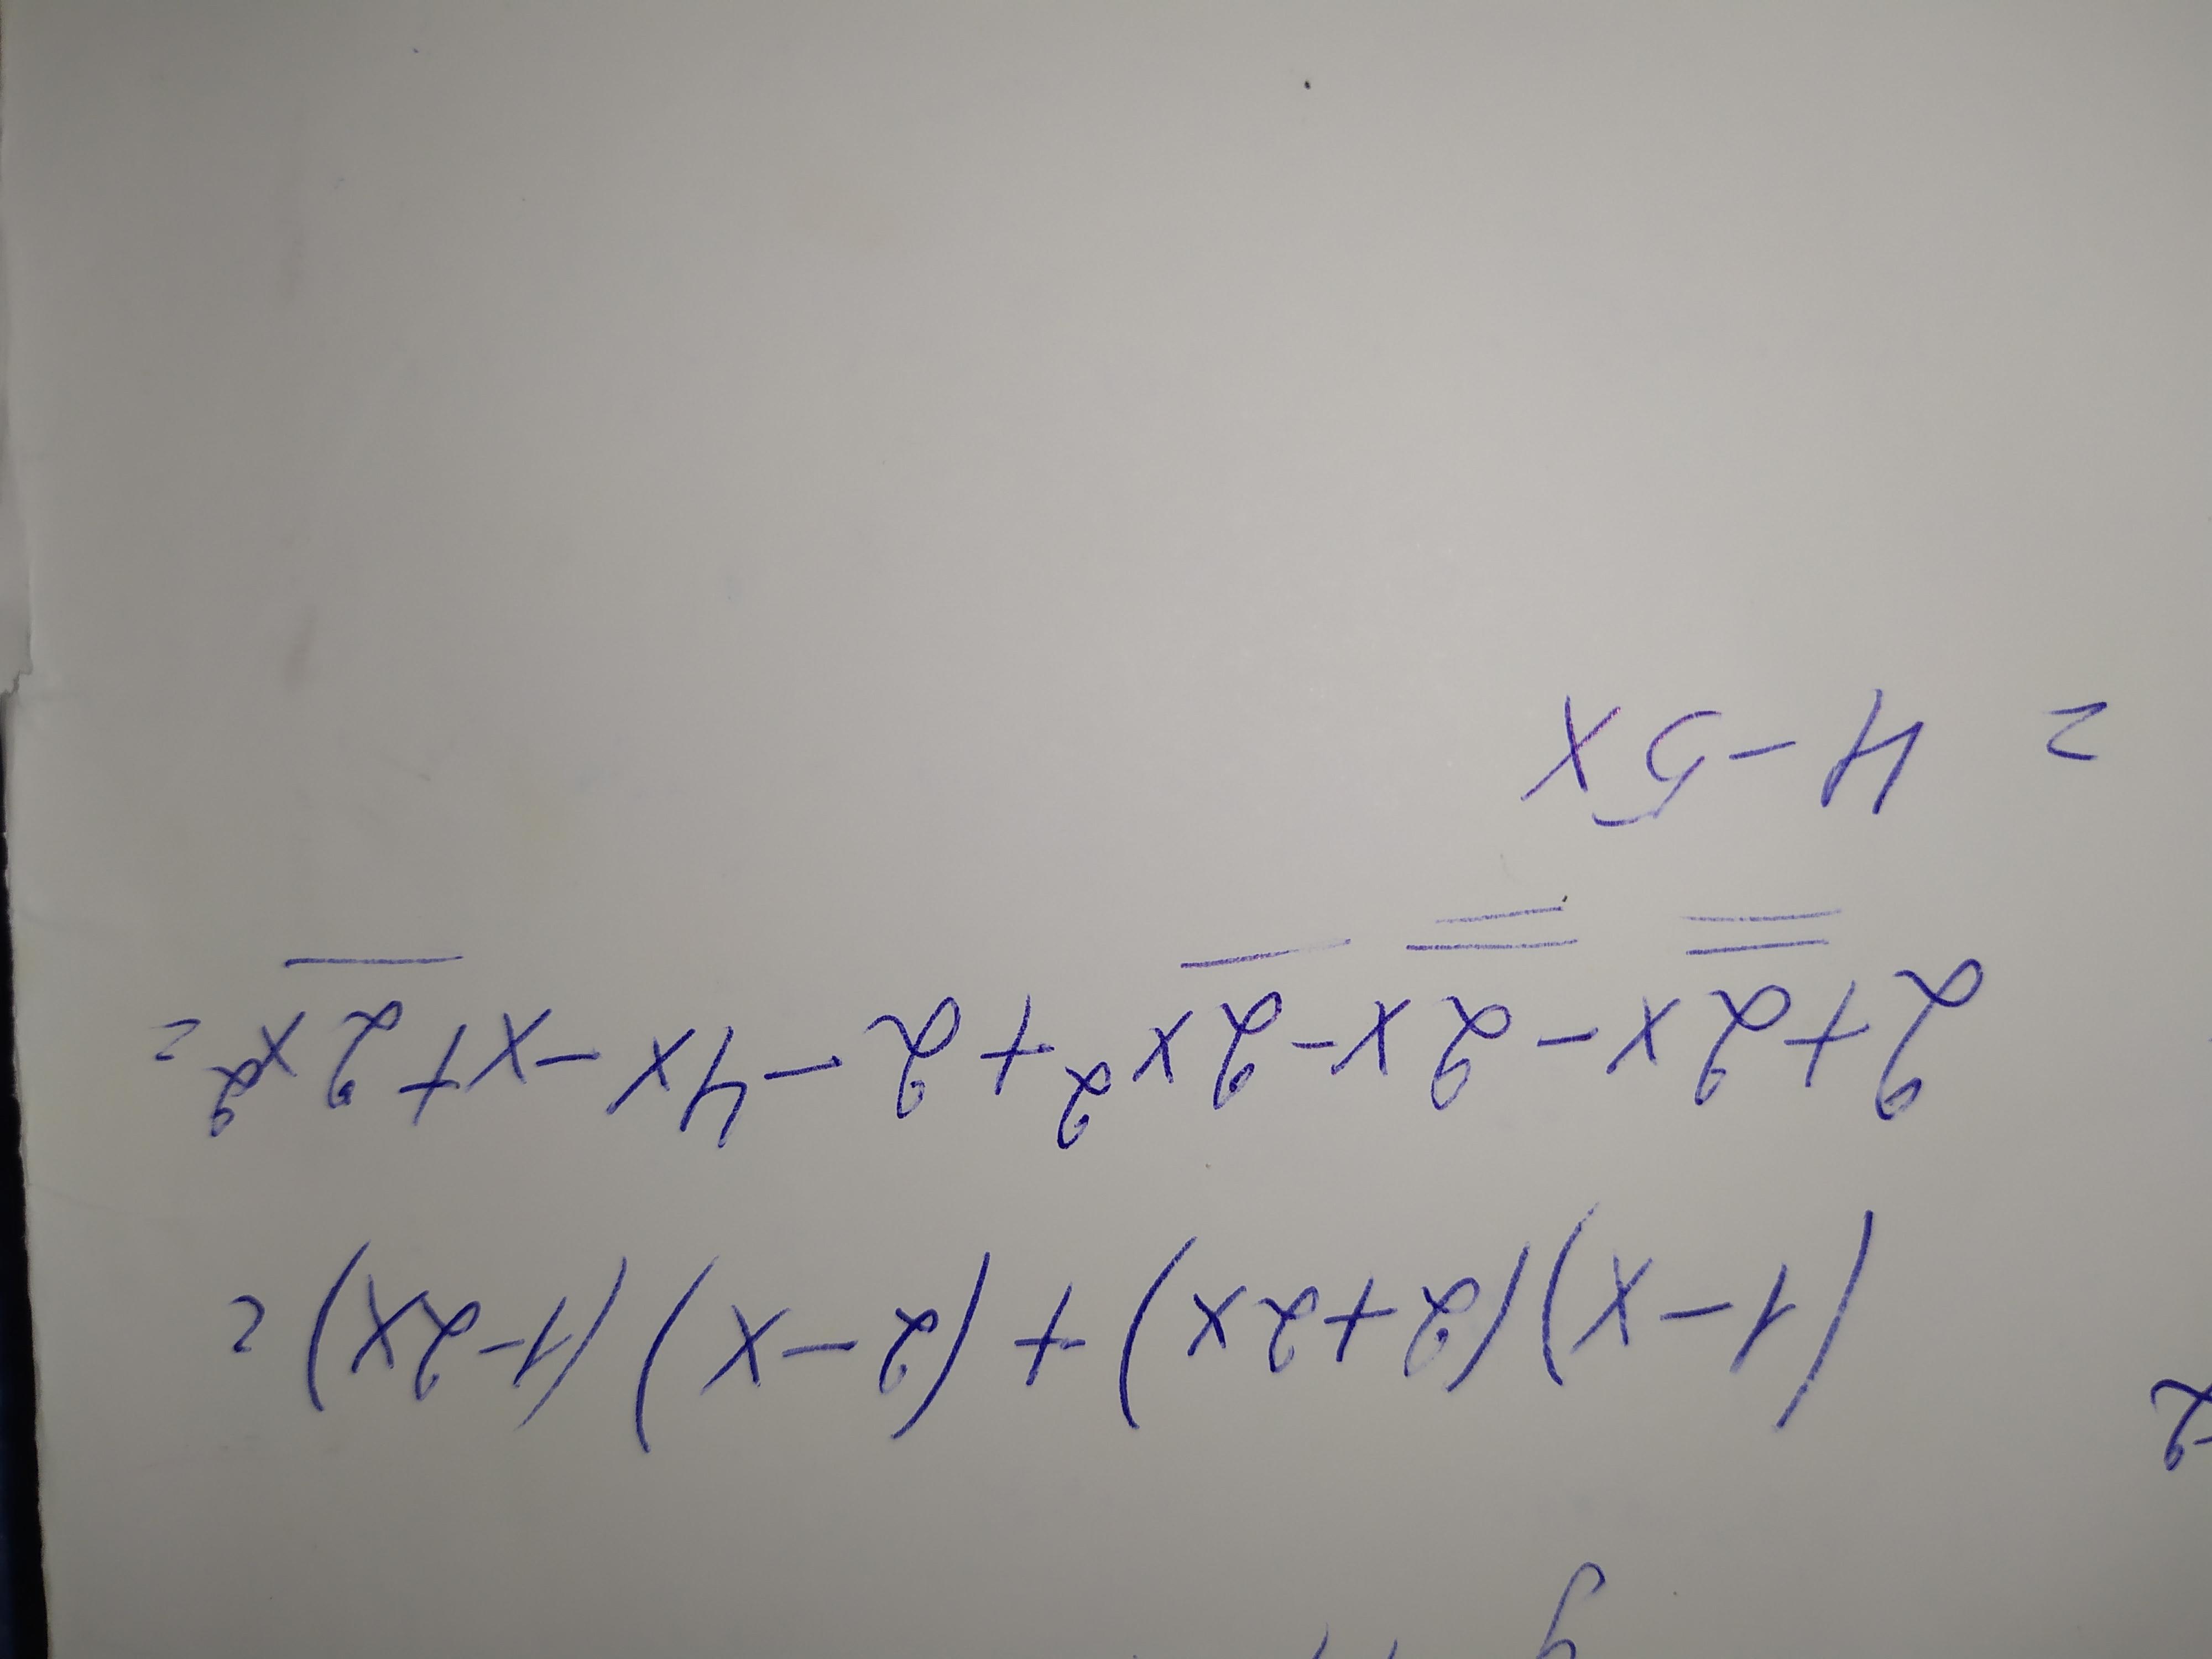 (1-x)(2+2x)+(2-x)(1-2x)=
2+2x-2x-2x²+2-4x-x+2x²=
= 4-5x